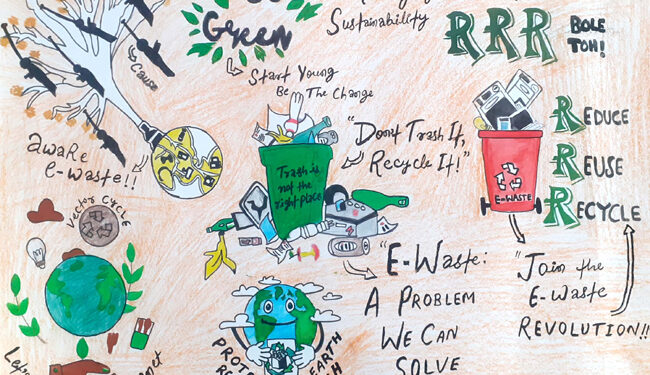 Green
Sustainability
RRR BOLE
TOH!
Cause
Start Young
Be The Change
aware
e-waste!!
Vector Cycle
Trash is
not the
right place
"Don't Trash It,
Recycle It!"
E-WASTE
REDUCE
REUSE
RECYCLE
"E-WASTE:
A PROBLEM
WE CAN
SOLVE
"Join the
E-Waste
REVOLUTION!!
EARTH